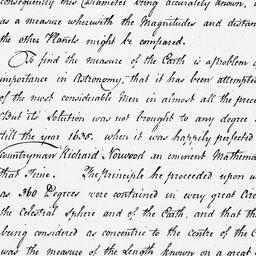 consequently this Diameter being accurately known,
as a measure wherewith the Magnitudes and distan
the other Planets might be compared.
To find the measure of the Earth is a problem o
importance in Astronomy, that it has been attempted
of the most considerable Men in almost all the prece
but its Solution was not brought to any degree
till the year 1635. when it was happily perfected
Countryman Richard Norwood an eminent Mathema
that Time. The Principle he proceeded upon w
as 360 Degrees were contained in every great Circ
the Celestial Sphere and of the Earth, and that th
being considered as concentric to the centre of the
was the measure of the Length known on a great